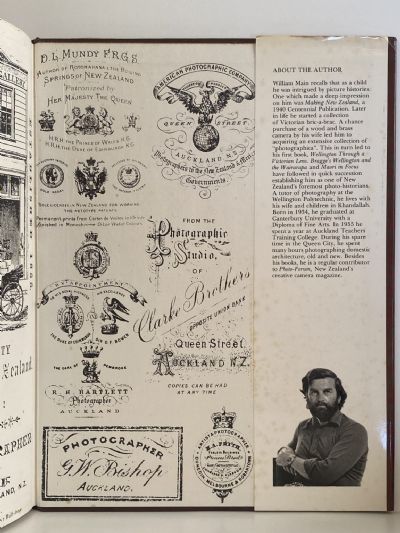 GALLERY
D. L. MUNDY F.R.G.S.
AUTHOR OF ROTOMAHANA & THE BOILING
SPRINGS OF NEW ZEALAND
Patronized by
HER MAJESTY THE QUEEN
H.R.H. THE PRINCE OF WALES K.G.
H.R.H. THE DUKE OF EDINBURGH K.G.
SOLE LICENSEE IN NEW ZEALAND FOR WORKING
THE AUTOTYPE PATENTS
AMERICAN PHOTOGRAPHIC COMPANY
QUEEN STREET
AUCKLAND N.Z.
Photographers to the New Zealand & Home
Governments.
FROM THE
Photographic
Studio
OF
Clarke Brothers
OPPOSITE UNION BANK
Queen Street
AUCKLAND N.Z.
COPIES CAN BE HAD
AT ANY TIME
BY APPOINTMENT
THE EARL OF PEMBROKE
R. H. BARTLETT
Photographer
AUCKLAND
PHOTOGRAPHER
G. W. Bishop
AUCKLAND.
ABOUT THE AUTHOR
William Main recalls that as a child
he was intrigued by picture histories.
One which made a deep impression
on him was Making New Zealand, a
1940 Centennial Publication. Later
in life he started a collection
of Victorian bric-a-brac. A chance
purchase of a wood and brass
camera by his wife led him to
acquiring an extensive collection of
"photographica". This in turn led to
his first book, Wellington Through a
Victorian Lens. Bragge's Wellington and
the Wairarapa and Maori in Focus
have followed in quick succession
establishing him as one of New
Zealand's foremost photo-historians.
A tutor of photography at the
Wellington Polytechnic, he lives with
his wife and children in Khandallah.
Born in 1934, he graduated at
Canterbury University with a
Diploma of Fine Arts. In 1955 he
spent a year at Auckland Teachers
Training College. During his spare
time in the Queen City, he spent
many hours photographing domestic
architecture, old and new. Besides
his books, he is a regular contributor
to Photo-Forum, New Zealand's
creative camera magazine.